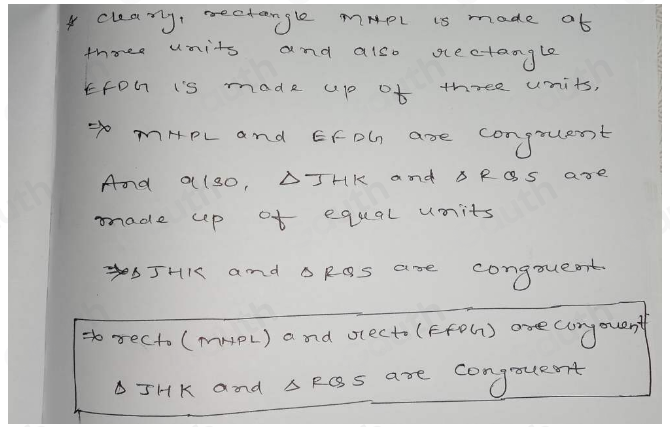 * clearly, rectangle MNPL is made of
three units and also rectangle
EFDG is made up of three units.
⇒ MNPL and EFDG are congruent
And also, △JHK and △RQS are
made up of equal units
⇒ △JHK and △RQS are congruent
⇒ rect. (MNPL) and rect. (EFDG) are congruent
△JHK and △RQS are congruent